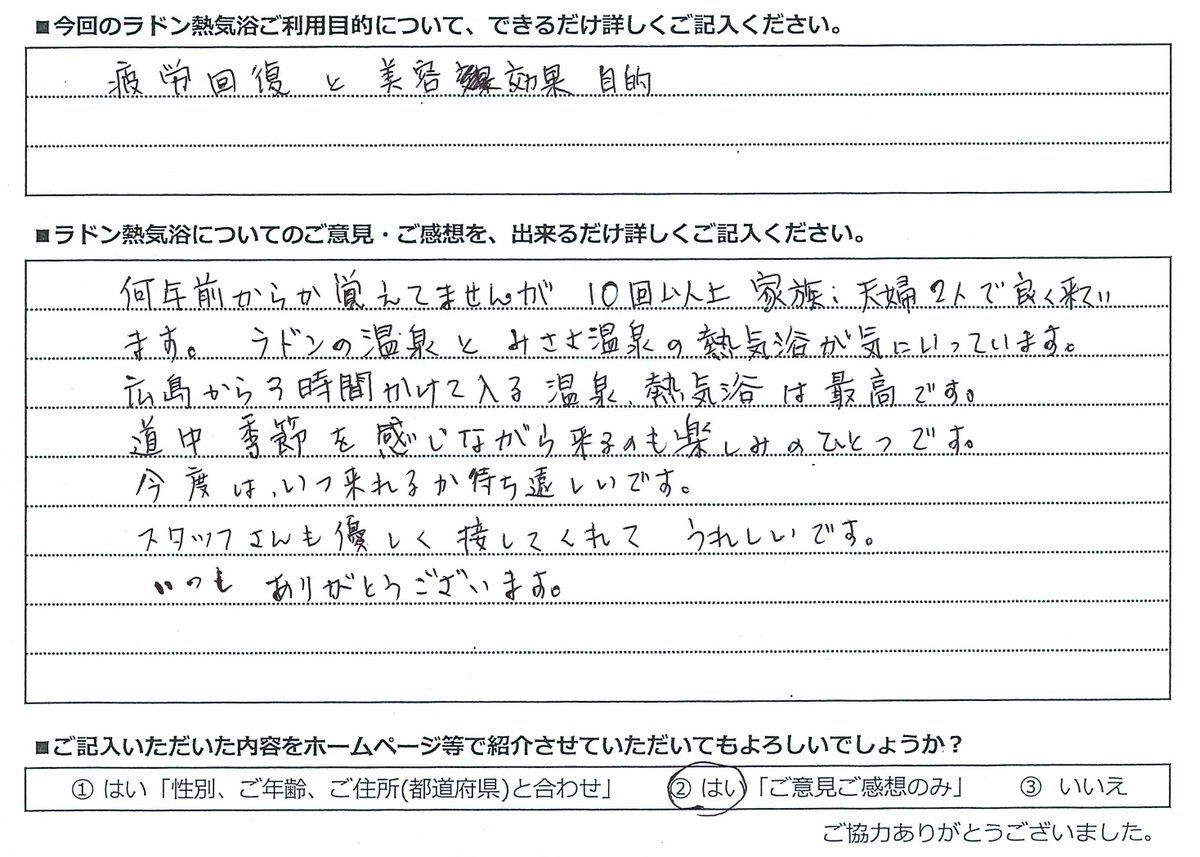 ■今回のラドン熱気浴ご利用目的について、できるだけ詳しくご記入ください。
疲労回復 と 美容 効果 目的
■ラドン熱気浴についてのご意見・ご感想を、出来るだけ詳しくご記入ください。
何年前からか覚えてませんが 10回以上 家族、夫婦2人で良く来てい
ます。 ラドンの温泉と みささ温泉の熱気浴が気にいっています。
広島から3時間かけて入る 温泉、熱気浴は最高です。
道中 季節を感じながら来るのも楽しみのひとつです。
今度は、いつ来れるか待ち遠しいです。
スタッフさんも優しく接してくれて うれしいです。
いつも ありがとうございます。
■ご記入いただいた内容をホームページ等で紹介させていただいてもよろしいでしょうか？
① はい「性別、ご年齢、ご住所(都道府県)と合わせ」 ② はい「ご意見ご感想のみ」 ③ いいえ
ご協力ありがとうございました。